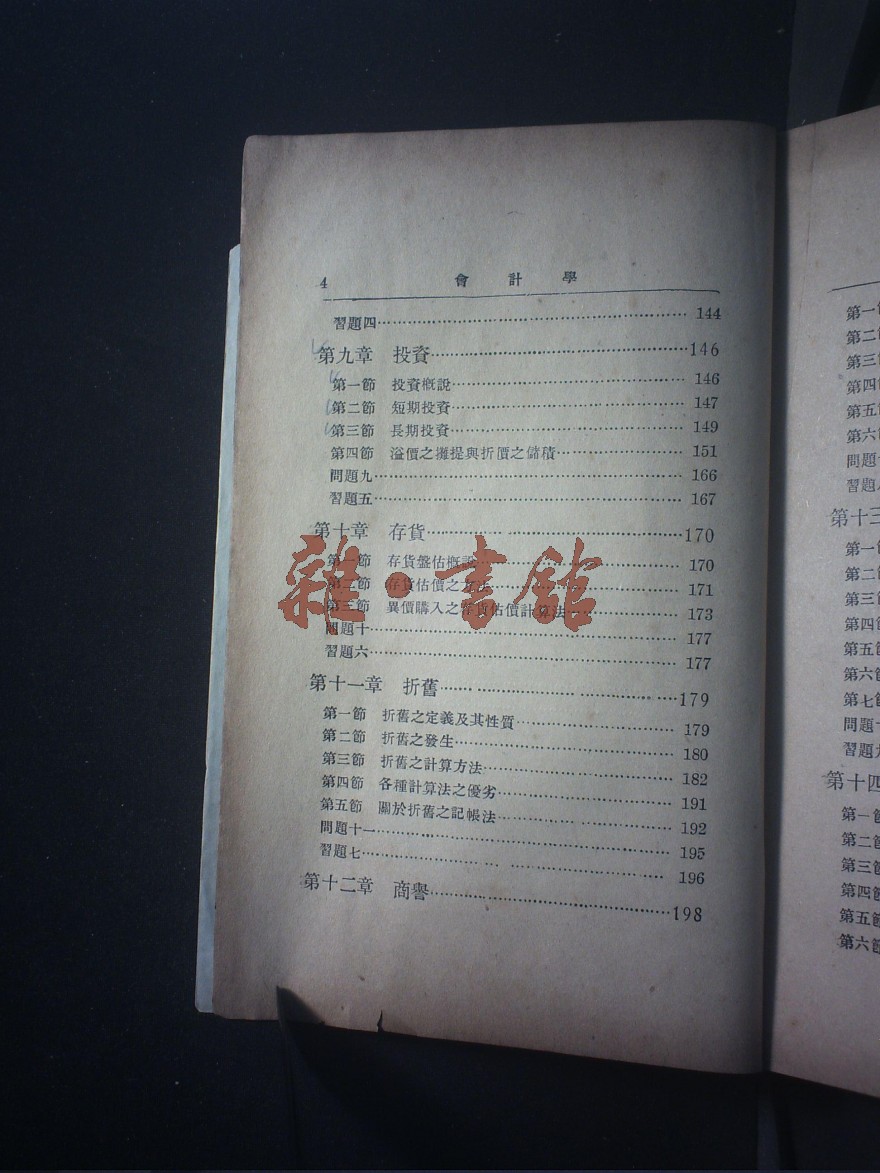 4 會計學
習題四 144
第九章 投資 146
第一節 投資概說 146
第二節 短期投資 147
第三節 長期投資 149
第四節 溢價之攤提與折價之儲積 151
問題九 166
習題五 167
第十章 存貨 170
第一節 存貨盤估概說 170
第二節 存貨估價之方法 171
第三節 異價購入之存貨估價計算法 173
問題十 177
習題六 177
第十一章 折舊 179
第一節 折舊之定義及其性質 179
第二節 折舊之發生 180
第三節 折舊之計算方法 182
第四節 各種計算法之優劣 191
第五節 關於折舊之記帳法 192
問題十一 195
習題七 196
第十二章 商譽 198
雜·書館
第一
第二
第三
第四
第五
第六
問題
習題
第十三
第一
第二
第三
第四
第五
第六
第七
問題
習題
第十四
第一
第二
第三
第四
第五
第六